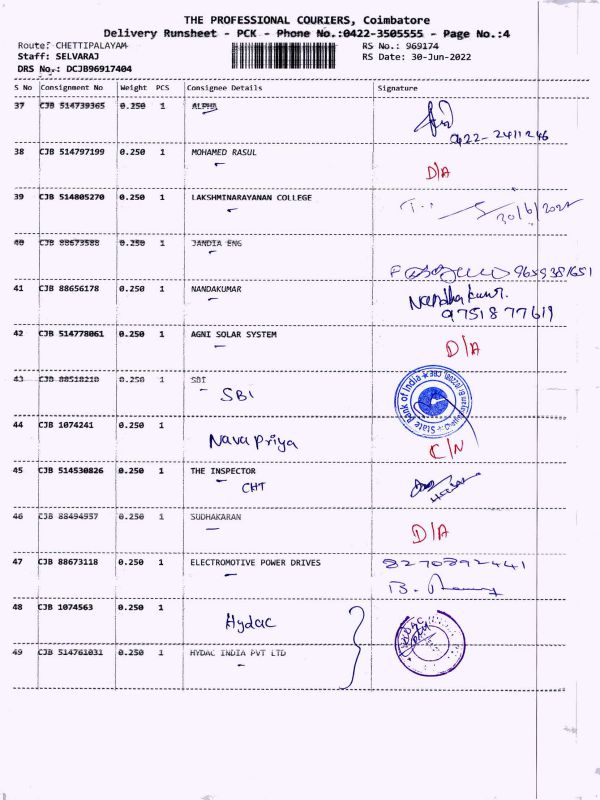 THE PROFESSIONAL COURIERS, Coimbatore
Delivery Runsheet - PCK - Phone No.:0422-3505555 - Page No.:4
Route: CHETTIPALAYAM RS No.: 969174
Staff: SELVARAJ RS Date: 30-Jun-2022
DRS No.: DCJB96917404
S No Consignment No Weight PCS Consignee Details Signature
37 CJB 514739365 0.250 1 ALPHA
0422-2411246
38 CJB 514797199 0.250 1 MOHAMED RASUL D/A
39 CJB 514805270 0.250 1 LAKSHMINARAYANAN COLLEGE 30/6/2022
40 CJB 88673588 0.250 1 JANDIA ENG
9659381651
41 CJB 88656178 0.250 1 NANDAKUMAR Nandhakumar.
9751877619
42 CJB 514778061 0.250 1 AGNI SOLAR SYSTEM D/A
43 CJB 88518210 0.250 1 SBI
SBI State Bank of India
44 CJB 1074241 0.250 1 Nava Priya C/N
45 CJB 514530826 0.250 1 THE INSPECTOR
CHT
46 CJB 88494957 0.250 1 SUDHAKARAN D/A
47 CJB 88673118 0.250 1 ELECTROMOTIVE POWER DRIVES 8270892441
48 CJB 1074563 0.250 1 Hydac
49 CJB 514761031 0.250 1 HYDAC INDIA PVT LTD